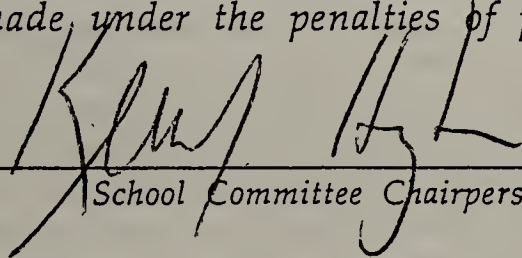 made under the penalties of
School Committee Chairpers